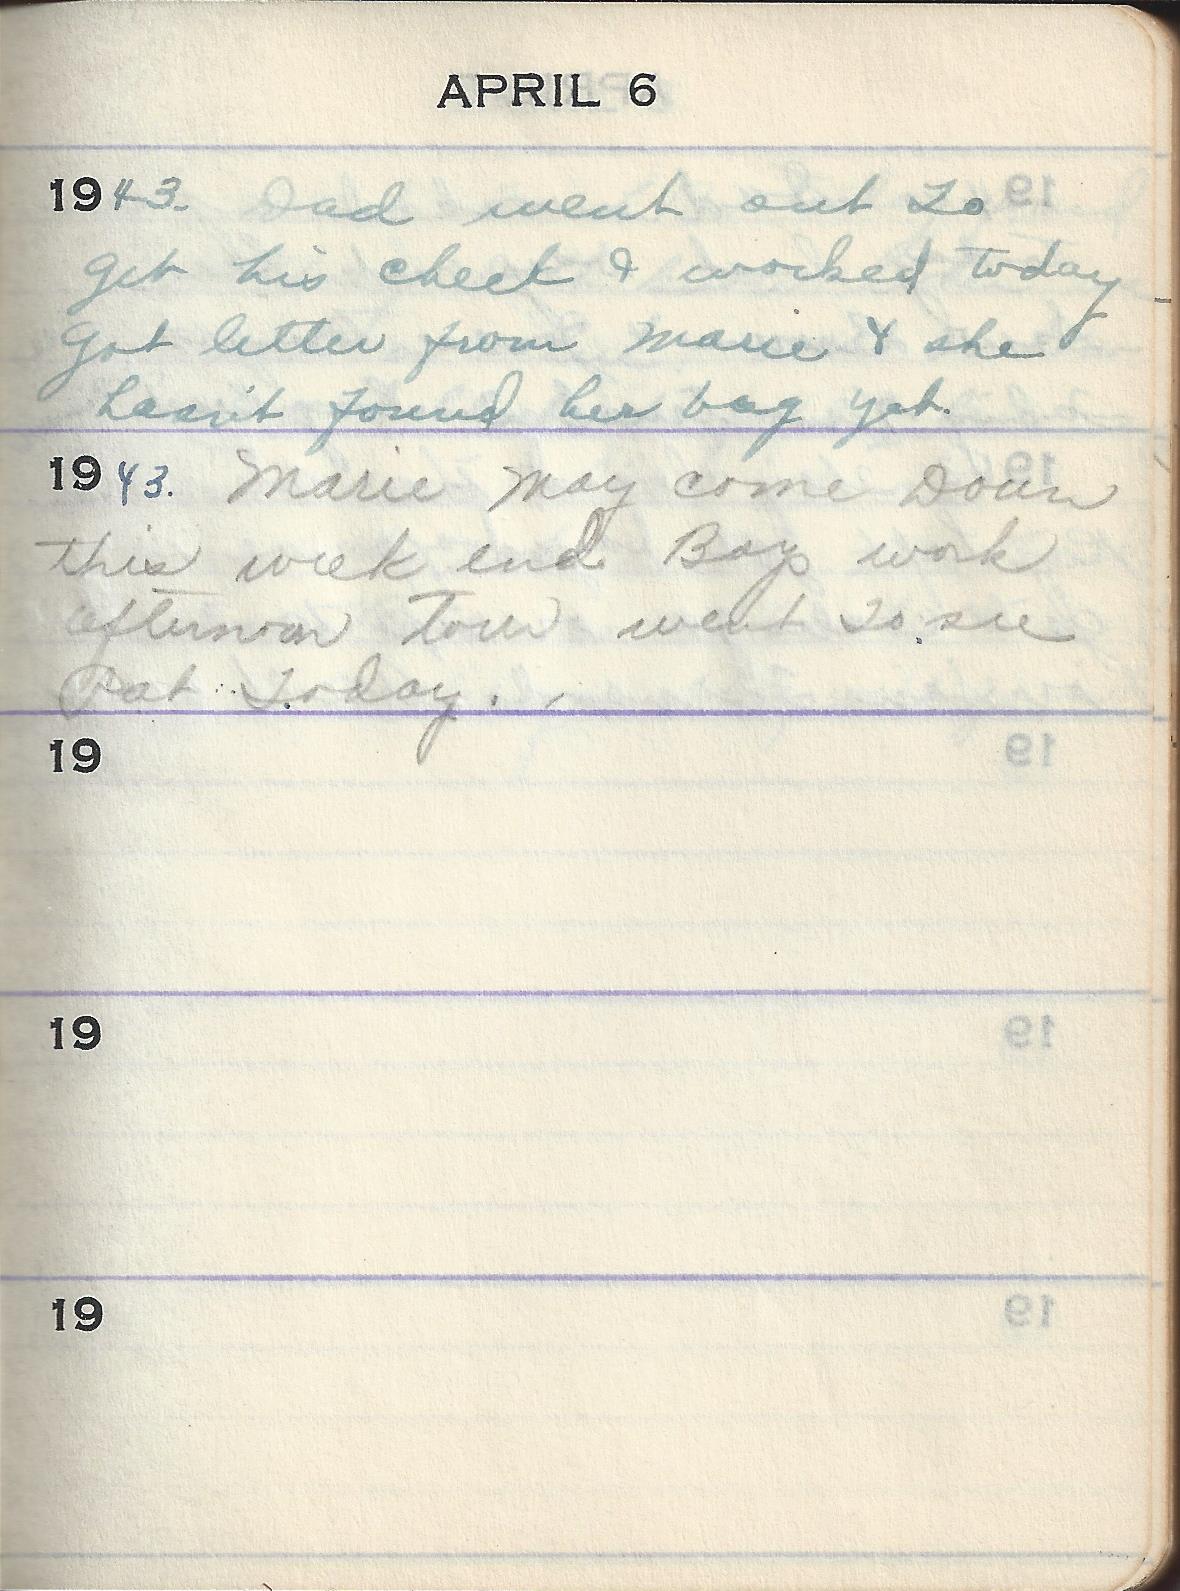 APRIL 6
1943. Dad went out to
get his check & worked today
got letter from Marie & she
hasn't found her bag yet.
1943. Marie may come Down
this week end Boys work
afternoon Tour went to see
Pat Today.
19
19
19